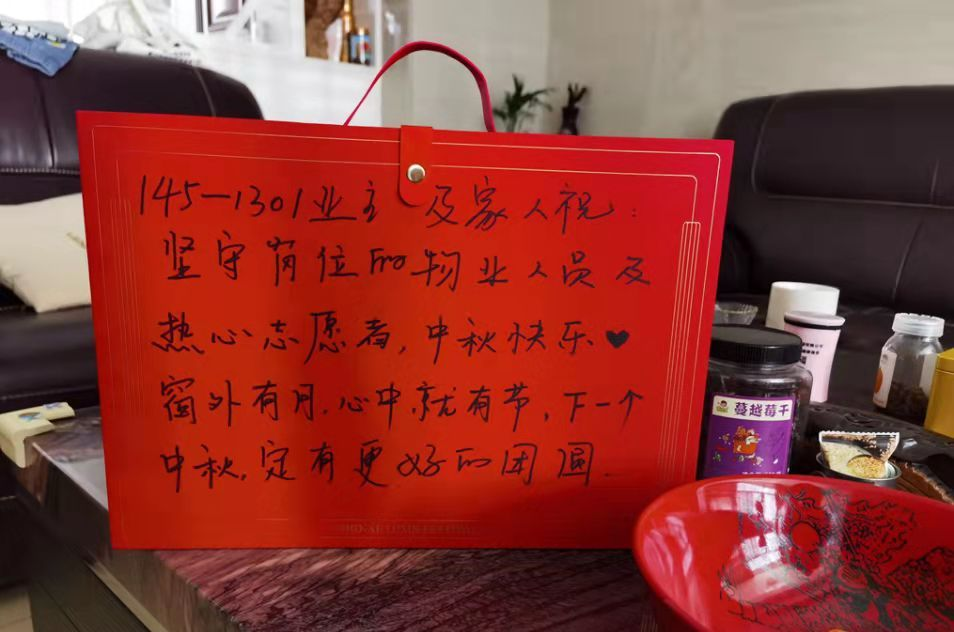 145-1301业主及家人祝:
坚守岗位的物业人员及
热心志愿者,中秋快乐♥
窗外有月,心中就有节,下一个
中秋,定有更好的团圆.
蔓越莓干